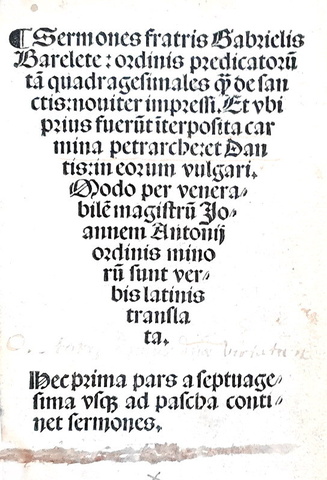 ¶ Sermones fratris Gabrielis
Barelete : ordinis predicatorũ
tã quadragesimales q̃ȝ de san
ctis: nouiter impressi. Et vbi
prius fuerũt ĩterposita car
mina petrarche: et Dan
tis: in eorum vulgari.
Modo per venera⸗
bilẽ magistrũ Jo⸗
annem Antonij
ordinis mino
rũ sunt ver⸗
bis latinis
transla
ta.
Hec prima pars a septuage⸗
sima vsqȝ ad pascha conti⸗
net sermones.